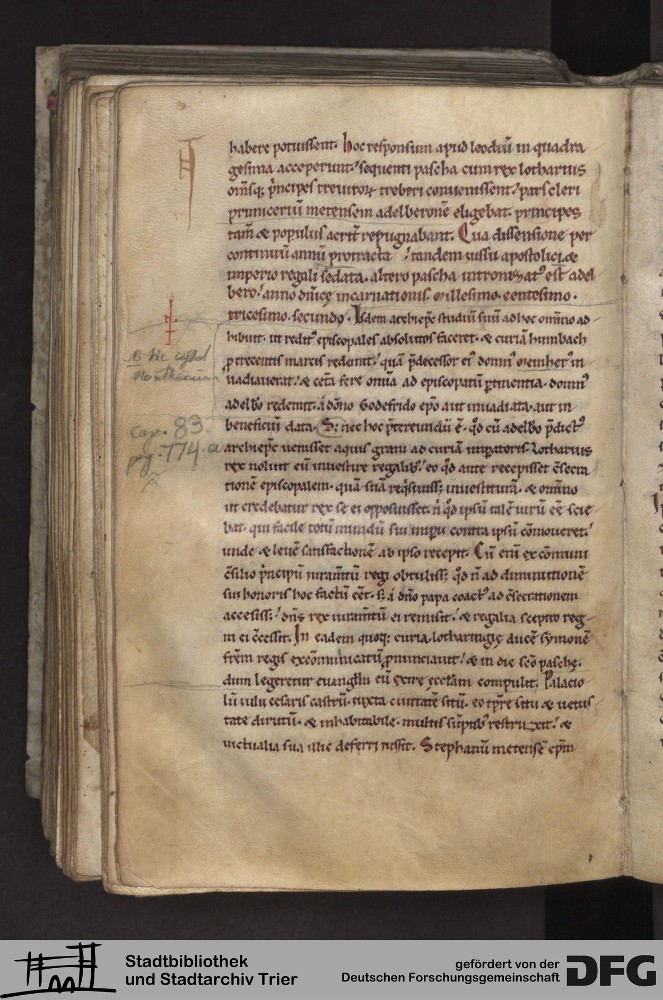 habere potuissent. hoc responsum apud leodiū in quadra
gesima acceperunt. sequenti pascha cum rex lotharius
om̄sq; p̄ncipes treviroꝝ treberi convenissent. pars cleri
primiceriū metensem adelberonē eligebat. principes
tam̄ & populus acrit̄ repugnabant. Qua dissensione per
continuū annū protracta. tandem iussu apostolici &
imperio regali sedata. altero pascha intronizatꝰ est adel
bero. anno dn̄icę incarnationis. millesimo. centesimo.
tricesimo. secundo. Isdem archiep̄c studiū suū ad hoc om̄io ad
hibuit. ut reditꝰ episcopales absolutos faceret. & curiā humbach
ꝑ trecentis marcis redemit. quā p̄decessor eiꝰ domnꝰ meinherꝰ in
uadiaverat. & cet̄a fere om̄ia ad episcopatū ꝑtinentia. domnꝰ
adelb̄o redemit. a dōno Godefrido ep̄o aut invadiata. aut in
beneficiū data. S; nec hoc p̄tereundū ē. qd̄ cū adelb̄o p̄dictꝰ
archiep̄c venisset aquis grani ad curiā imꝑatoris. Lotharius
rex noluit eū investire regalibꝰ. eo qd̄ ante recepisset c̄secra
tionē episcopalem. quā suā reqͥsiuiss; investiturā. & om̄ino
ut credebatur rex se ei opposuisset. n̄ qd̄ ipsū talē virū eē scie
bat. qui facile totū mundū sui imperii contra ipsū cōmoveret.
unde & levē satisfactionē ab ipso recepit. Cū enī ex cōmuni
c̄silio p̄ncipū iuram̄tū regi obtuliss; qd̄ n̄ ad diminutionē
sui honoris hoc factū eēt. s; a dn̄o papa coactꝰ ad c̄secrationem
accessiss; dn̄s rex iuram̄tū ei remisit. & regalia sceptro reg
ni ei c̄cessit. In eadem quoq; curia. lotharingię ducē symonē
frēm regis excōmunicatū ꝓnunciavit. & in die sc̄o paschę.
dum legeretur euangl̄iu eū exire ęccl̄am compulit. Palacio
lū iulii cesaris castrū. iuxta civitatē sitū. eo tp̄re situ & vetus
tate dirutū. & inhabitabile. multis sūptibꝰ restruxit. &
victualia sua illic deferri iussit. Stephanū metensē ep̄m
cap. 83.
pag. 174. a
Stadtbibliothek
und Stadtarchiv Trier
gefördert von der
Deutschen Forschungsgemeinschaft
DFG